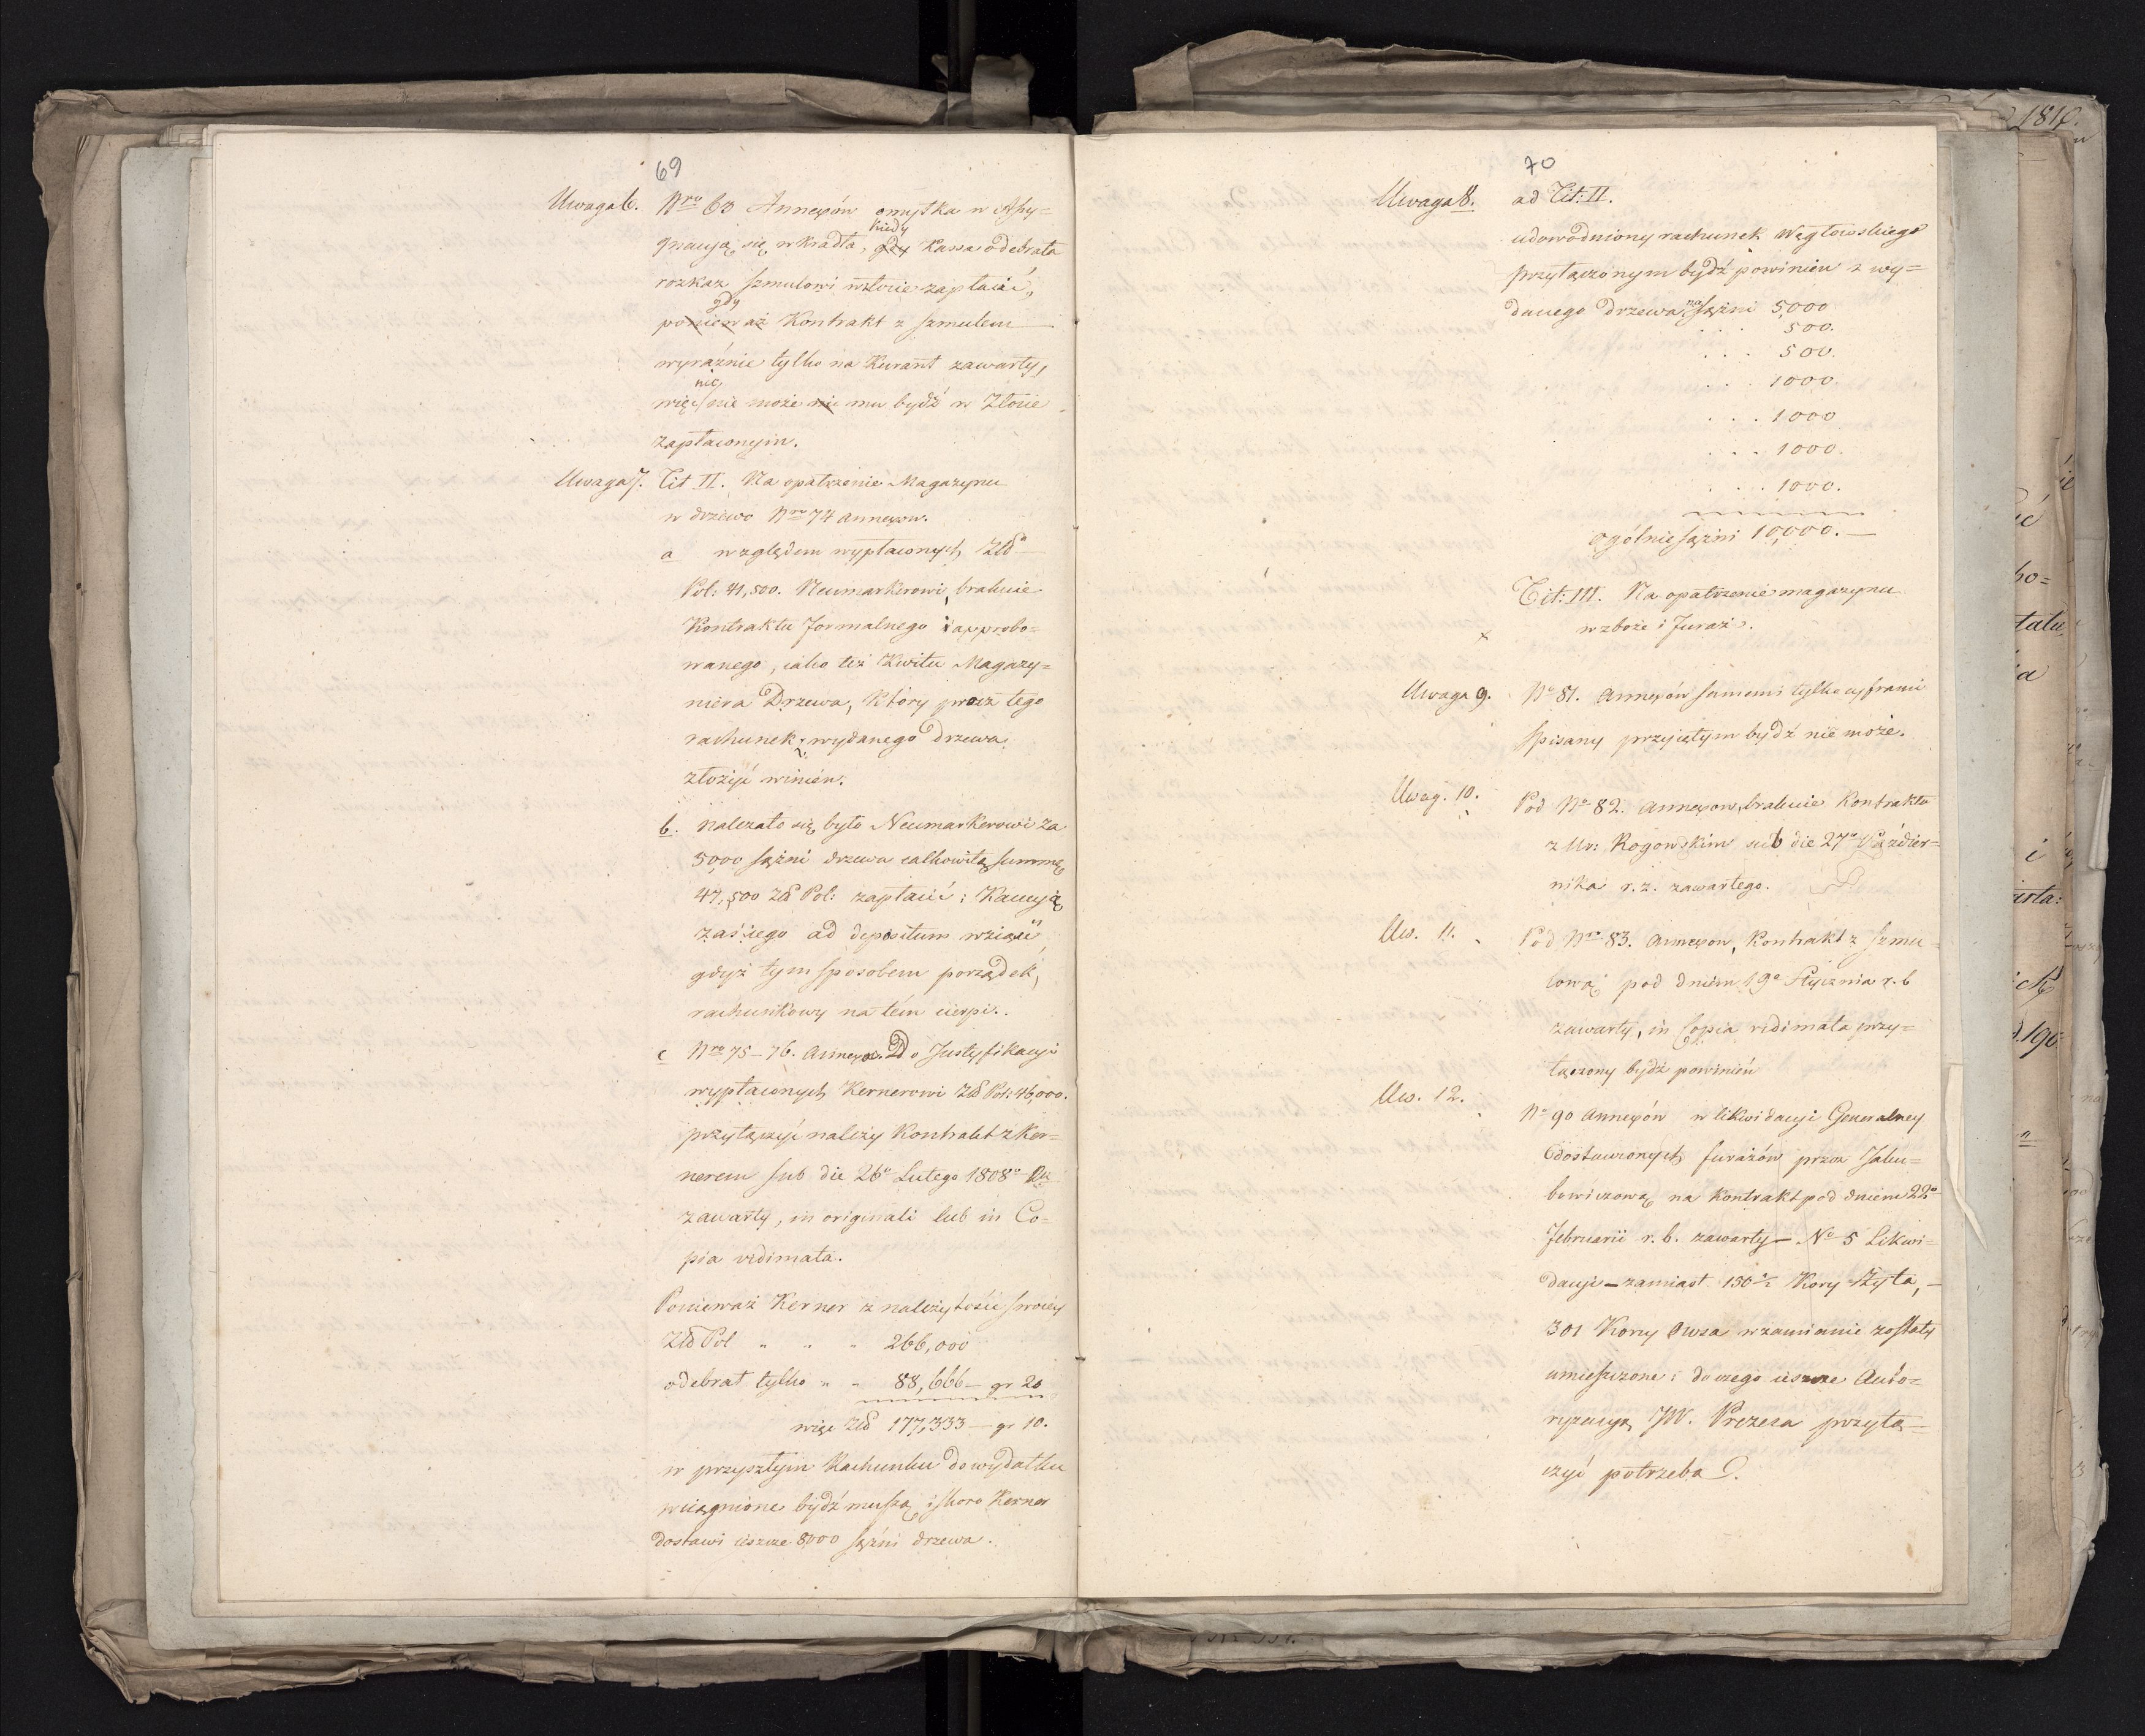 69
Uwaga 6. Nro 63 Annexów omyłka w Assy=
gnacyą się wkradła, kiedy gdy Kassa odebrała
rozkaz Szmulowi w złocie zapłacić,
gdy ponieważ Kontrakt z Szmulem
wyraźnie tylko na Kurant zawarty,
więc nic nie może nic mu bydź w Złocie
zapłaconym.
Uwaga 7. Tit II. Na opatrzenie Magazynu
w drzewo Nro 74 annexow.
a względem wypłaconych Złł
Pol: 41,500. Neumarkerowi, brakuie
Kontraktu formalnego i approbo=
wanego, iako też Kwitu Magazy=
niera Drzewa, który procz tego
rachunek z wydanego drzewa
złożyć winien.
b. należało się było Neumarkerowi za
5,000 sążni drzewa całkowitą summę
47,500 Złł Pol: zapłacić: Kaucyą
zaś iego ad depositum wziąść
gdyż tym sposobem porządek,
rachunkowy na tém cierpi.
c Nro 75–76. Annexo. Do Justyfikacyi
wypłaconych Kernerowi Złł Pol: 46,000.
przyłączyć należy Kontrakt z Ker=
nerem sub die 26o Lutego 1808o
zawarty, in originali lub in Co=
pia vidimata.
Ponieważ Kerner z należytości swoiey
Złł Pol " " " 266,000
odebrał tylko " " 88,666 – gr 20
więc Złł 177,333 – gr 10.
w przyszłym Rachunku do wydatku
wciągnione bydź muszą, skoro Kerner
dostawi ieszcze 8,000 sążni drzewa.
70
Uwaga 8. ad Tit: II.
udowodniony rachunek Węgłowskiego
przyłączonym bydź powinien z wy=
danego drzewa na sążni 5,000
. . . 500.
. . . 500.
. . . 1000.
. . . 1000
. . . 1000.
. . . 1000.
ogólnie sążni 10,000. —
Tit: III. Na opatrzenie magazynu
w zboże i furaż.
Uwaga 9. No 81. Annexów summy tylko cyframi
spisany przyiętym bydź nie może.
Uwag. 10. Pod No 82. Annexow, brakuie Kontraktu
z Ur: Rogowskim sub die 27o Paździer=
nika r. z. zawartego.
Uw. 11. Pod Nro 83. Annexow, Kontrakt z Szmu=
lową pod dniem 19o Stycznia r. b
zawarty, in Copia vidimata przy=
łączony bydź powinien
Uw. 12. No 90 Annexów w likwidacyi Generalney
dostawionych furażów przez Jaku=
bowiczową na Kontrakt pod dniem 22o
Februarii r. b. zawarty – No 5 Likwi=
dacyi – zamiast 150 1/2 Kory Żyta, –
301 Korcy Owsa w zamianie zostały
umieszczone: do czego ieszcze Auto=
ryzacyą JW. Prezesa przyłą=
czyć potrzeba.